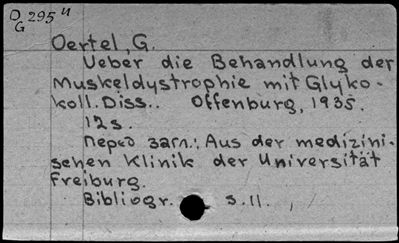 D 295 u
G
Oertel, G.
Ueber die Behandlung der
Muskeldystrophie mit Glyko-
koll. Diss.. Offenburg, 1935.
12 s.
Перед загл.: Aus der medizini-
schen Klinik der Universität
Freiburg.
Bibliogr. s. 11.